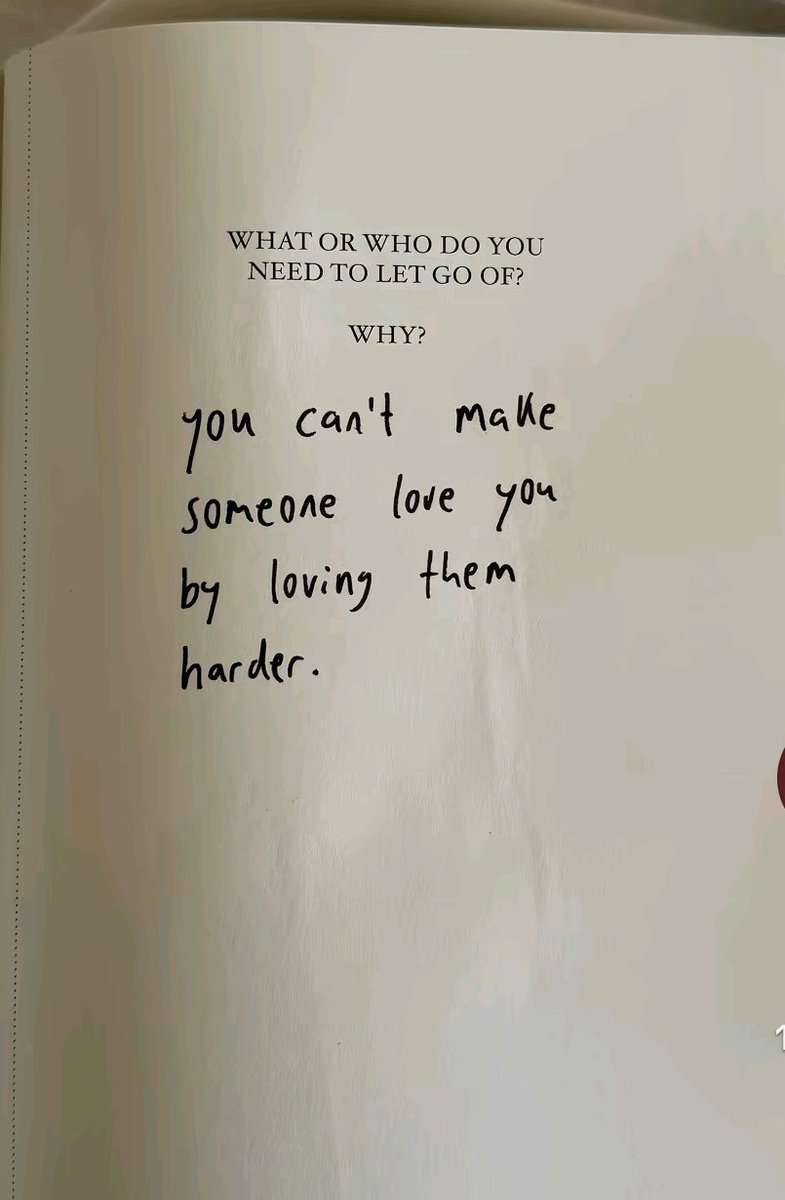 WHAT OR WHO DO YOU
NEED TO LET GO OF?
WHY?
you can't make
someone love you
by loving them
harder.